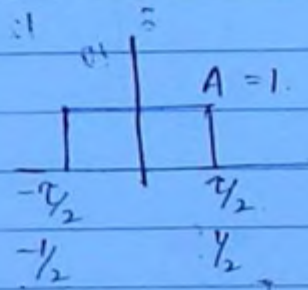 A = 1.
-τ/2 τ/2.
-1/2 1/2